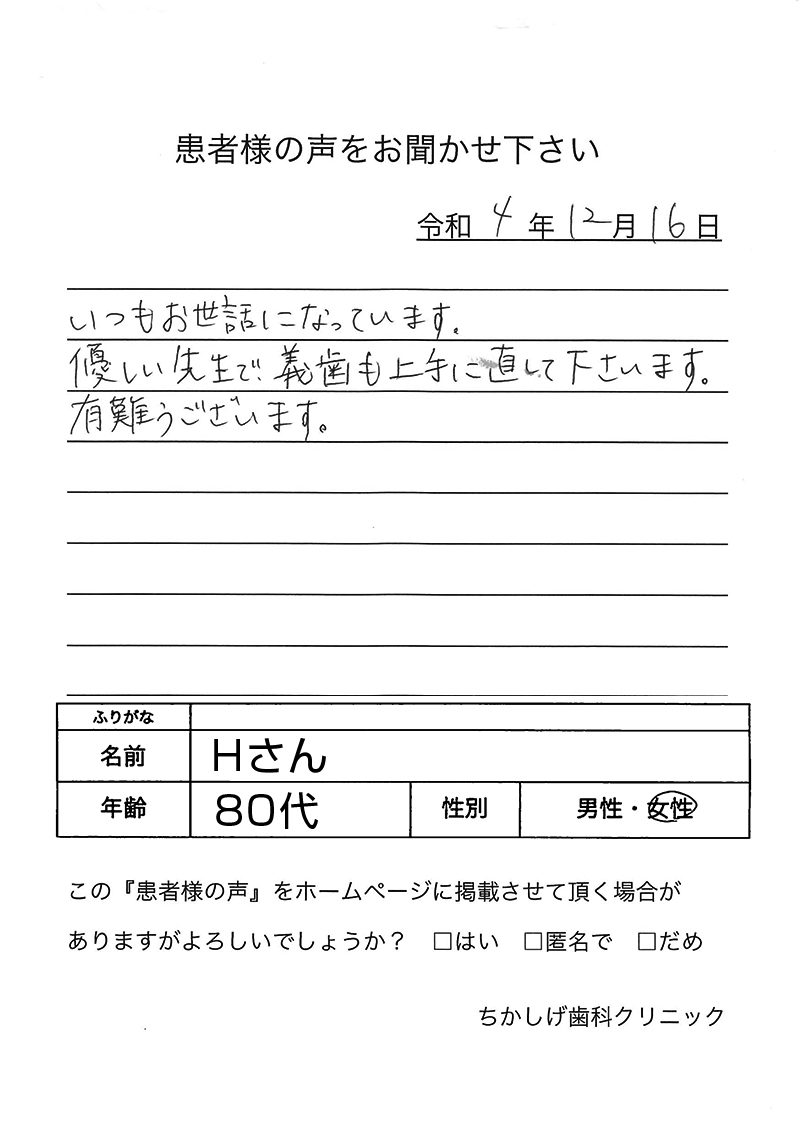 患者様の声をお聞かせ下さい
令和 4 年 12 月 16 日
いつもお世話になっています。
優しい先生で、義歯も上手に直して下さいます。
有難うございます。
ふりがな
名前 Hさん
年齢 80代 性別 男性・女性
この『患者様の声』をホームページに掲載させて頂く場合が
ありますがよろしいでしょうか？ □はい □匿名で □だめ
ちかしげ歯科クリニック